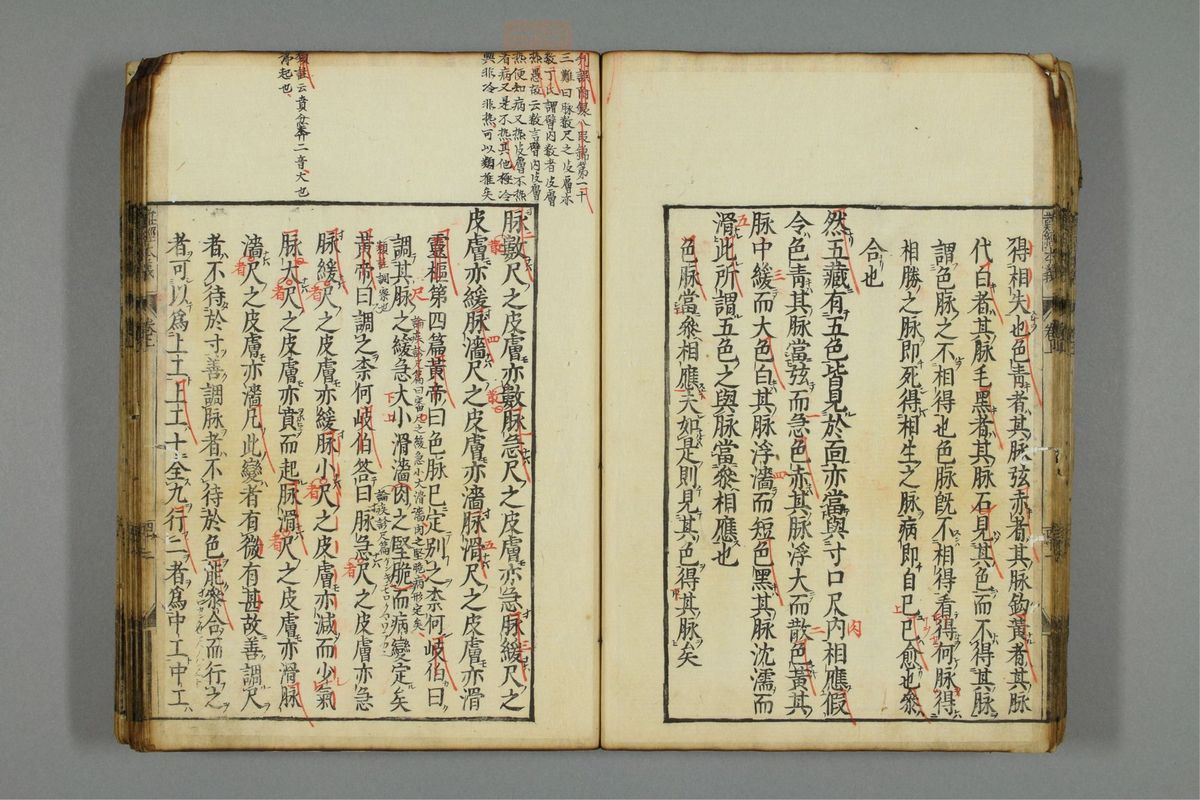 得相失也色青者其脉弦赤者其脉鈎黃者其脉
代白者其脉毛黑者其脉石見其色而不得其脉
謂色脉之不相得也色脉既不相得看得何脉得
相勝之脉即死得相生之脉病即自已已愈也參
合也
然五藏有五色皆見於面亦當與寸口尺內相應假
令色青其脉當弦而急色赤其脉浮大而散色黃其
脉中緩而大色白其脉浮濇而短色黑其脉沈濡而
滑此所謂五色之與脉當參相應也
色脉當參相應夫如是則見其色得其脉矣
脉數尺之皮膚亦數脉急尺之皮膚亦急脉緩尺之
皮膚亦緩脉濇尺之皮膚亦濇脉滑尺之皮膚亦滑
靈樞第四篇黃帝曰色脉已定別之柰何岐伯曰
調其脉之緩急大小滑濇肉之堅脆而病變定矣
黃帝曰調之柰何岐伯答曰脉急尺之皮膚亦急
脉緩尺之皮膚亦緩脉小尺之皮膚亦減而少氣
脉大尺之皮膚亦賁而起脉滑尺之皮膚亦滑脉
濇尺之皮膚亦濇凡此變者有微有甚故善調尺
者不待於寸善調脉者不待於色能參合而行之
者可以爲上工上工十全九行二者爲中工中工
三難曰脉數尺之皮膚亦
數丁氏謂臂內數者皮膚
熱愚故云數言臂內皮膚
熱便知病又熱皮膚不熱
者病又是不熱其他極冷
與非冷非熱可以類推矣
類註云賁奔二音大也
沸起也
類註調察也